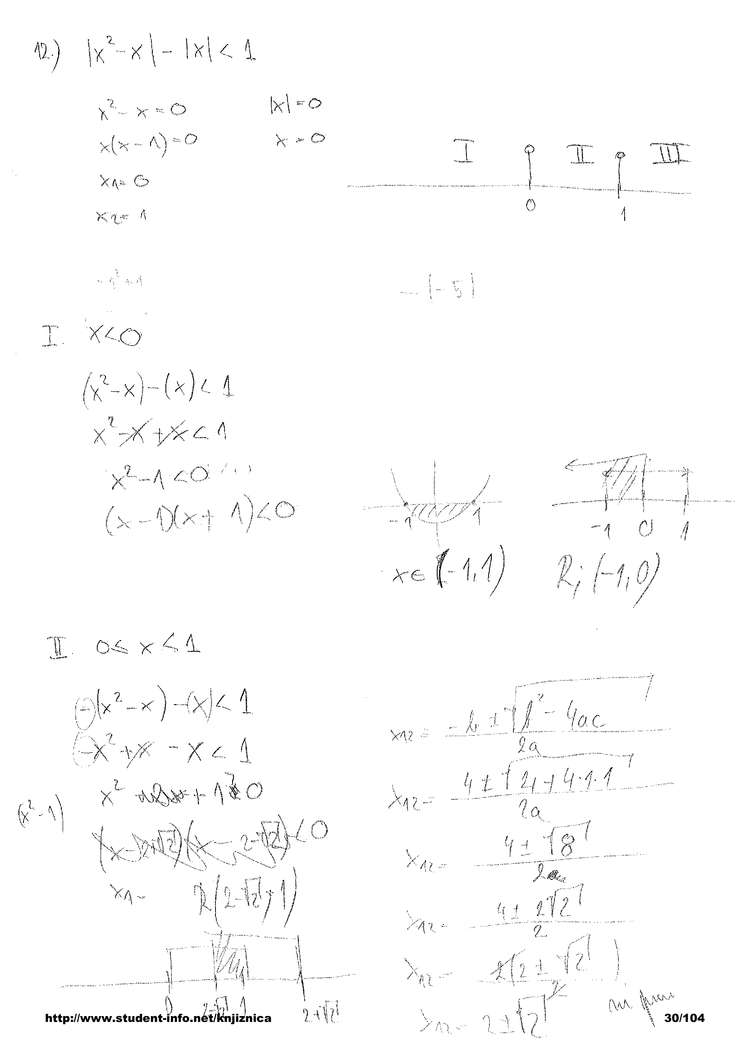 12.) |x²-x| - |x| < 1
x² - x = 0 |x| = 0
x(x-1) = 0 x = 0
x1 = 0
x2 = 1
I II III
0 1
-1²+1
-|-5|
I. x<0
(x²-x) - (x) < 1
x² - x + x < 1
x² - 1 < 0
(x-1)(x+1) < 0
-1 1
x ∈ (-1,1)
-1 0 1
R; (-1,0)
II. 0 ≤ x < 1
-(x²-x) - (x) < 1
-x² + x - x < 1
x² + 1 0
(x²-1)
x1 =
R(2-√2, 1)
0 2-√2 1 2+√2
x12 = -b ± √b² - 4ac / 2a
x12 = 4 ± √ 4 + 4·1·1 / 2a
x12 = 4 ± √8 / 2
x12 = 4 ± 2√2 / 2
x12 = 2(2 ± √2) / 2
x12 = 2 ± √2
http://www.student-info.net/knjiznica
30/104